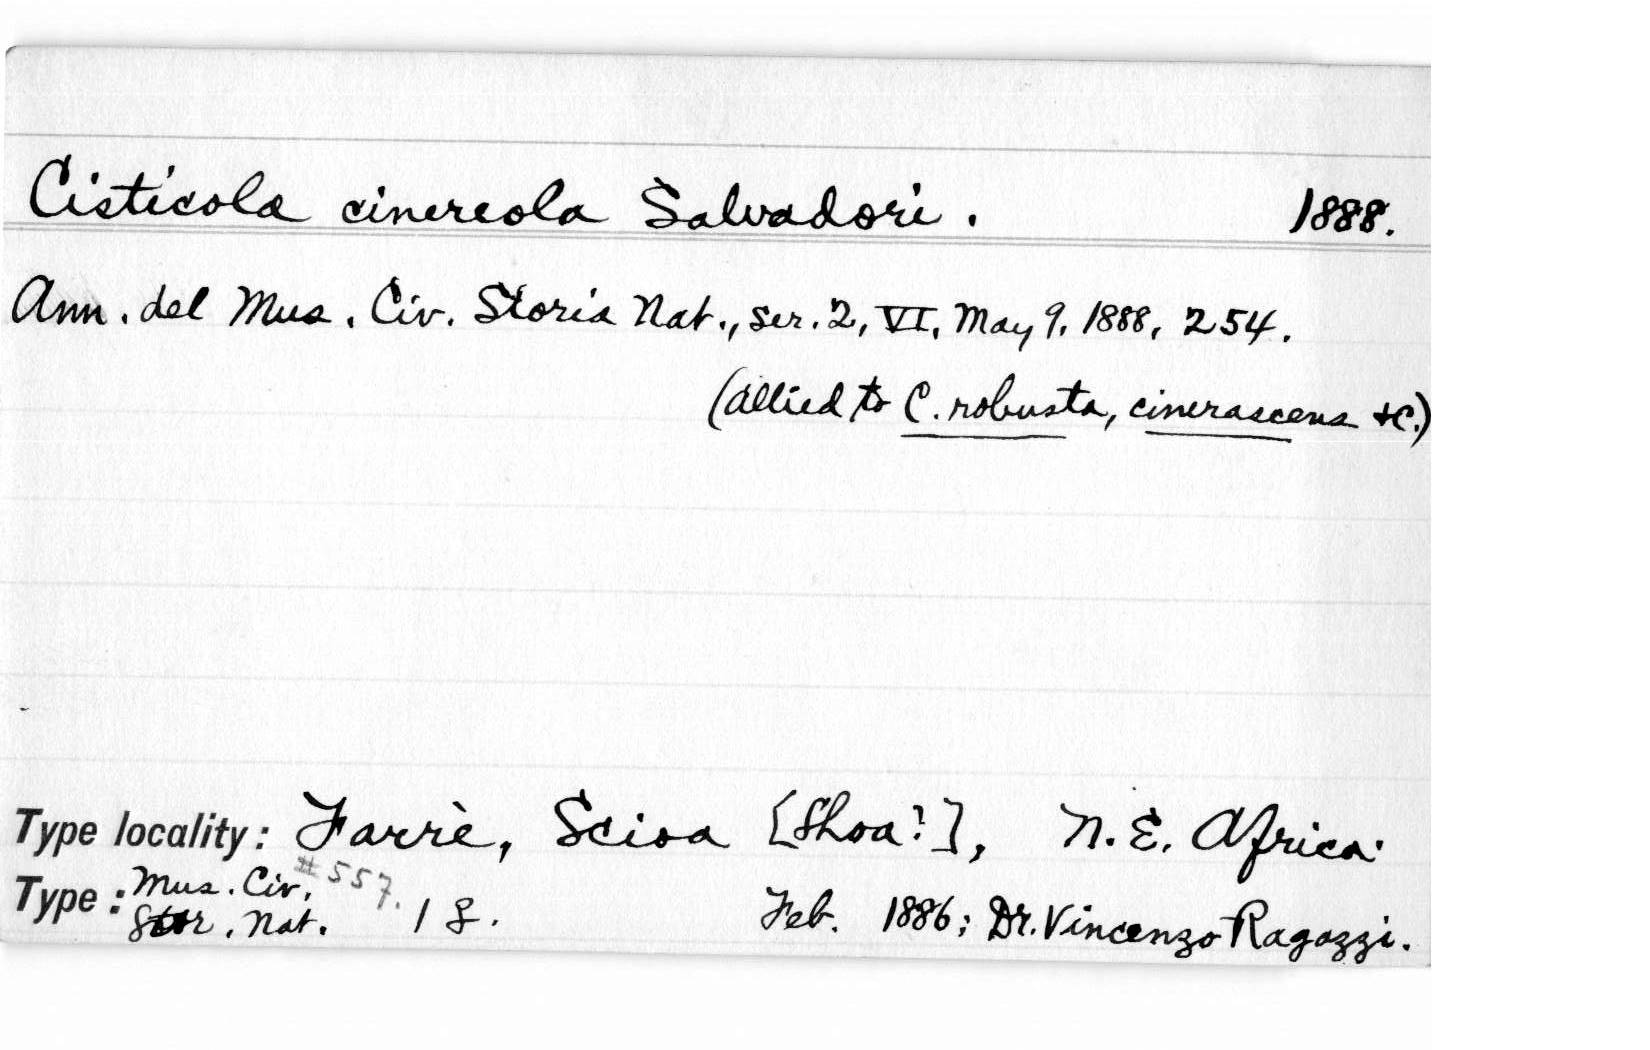 Cisticola cinereola Salvadori. 1888.
Ann. del Mus. Civ. Storia Nat., ser. 2, VI, May 9, 1888, 254.
(Allied to C. robusta, cinerascens &c.)
Type locality: Farrè, Scioa [Shoa?], N.E. Africa.
#557.
Type: Mus. Civ.
Stor. Nat. 1 Feb. 1886; Dr. Vincenzo Ragazzi.